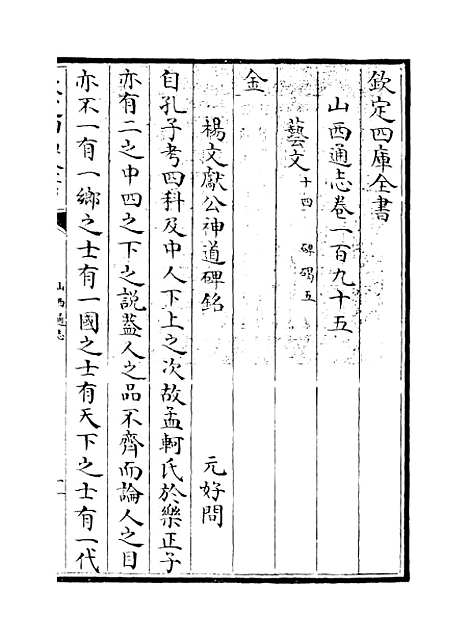 欽定四庫全書
山西通志卷一百九十五
藝文十四 碑碣五
金
楊文獻公神道碑銘 元好問
自孔子考四科及中人下上之次故孟軻氏於樂正子
亦有二之中四之下之説葢人之品不齊而論人之目
亦不一有一鄉之士有一國之士有天下之士有一代
山西通志